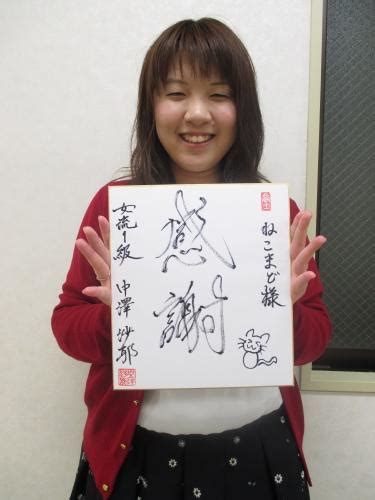 ねこまど様
感謝
女流1級 中澤沙耶